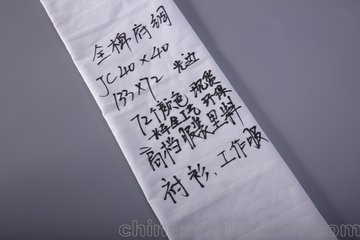 全棉府绸
JC40×40
133×72 光边
72个颜色 现货
环保
高档服装里料
衬衫、工作服